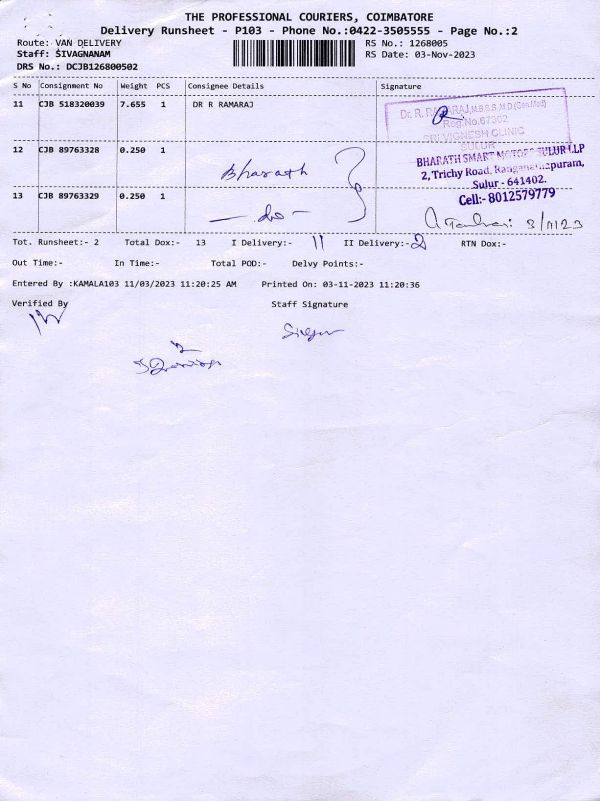 THE PROFESSIONAL COURIERS, COIMBATORE
Delivery Runsheet - P103 - Phone No.:0422-3505555 - Page No.:2
Route: VAN DELIVERY
RS No.: 1268005
Staff: SIVAGNANAM
RS Date: 03-Nov-2023
DRS No.: DCJB126800502
S No Consignment No Weight PCS Consignee Details Signature
11 CJB 518320039 7.655 1 DR R RAMARAJ
Dr. R. RAMARAJ, M.B.B.S.,M.D.(Gen.Med)
Reg No.67302
SRI VIGNESH CLINIC
SULUR
12 CJB 89763328 0.250 1 Bharath
BHARATH SMART MOTORS SULUR LLP
2, Trichy Road, Ranganathapuram,
Sulur - 641402.
Cell:- 8012579779
13 CJB 89763329 0.250 1 - do -
3/11/23
Tot. Runsheet:- 2 Total Dox:- 13 I Delivery:- 11 II Delivery:- 2 RTN Dox:-
Out Time:- In Time:- Total POD:- Delvy Points:-
Entered By :KAMALA103 11/03/2023 11:20:25 AM Printed On: 03-11-2023 11:20:36
Verified By Staff Signature